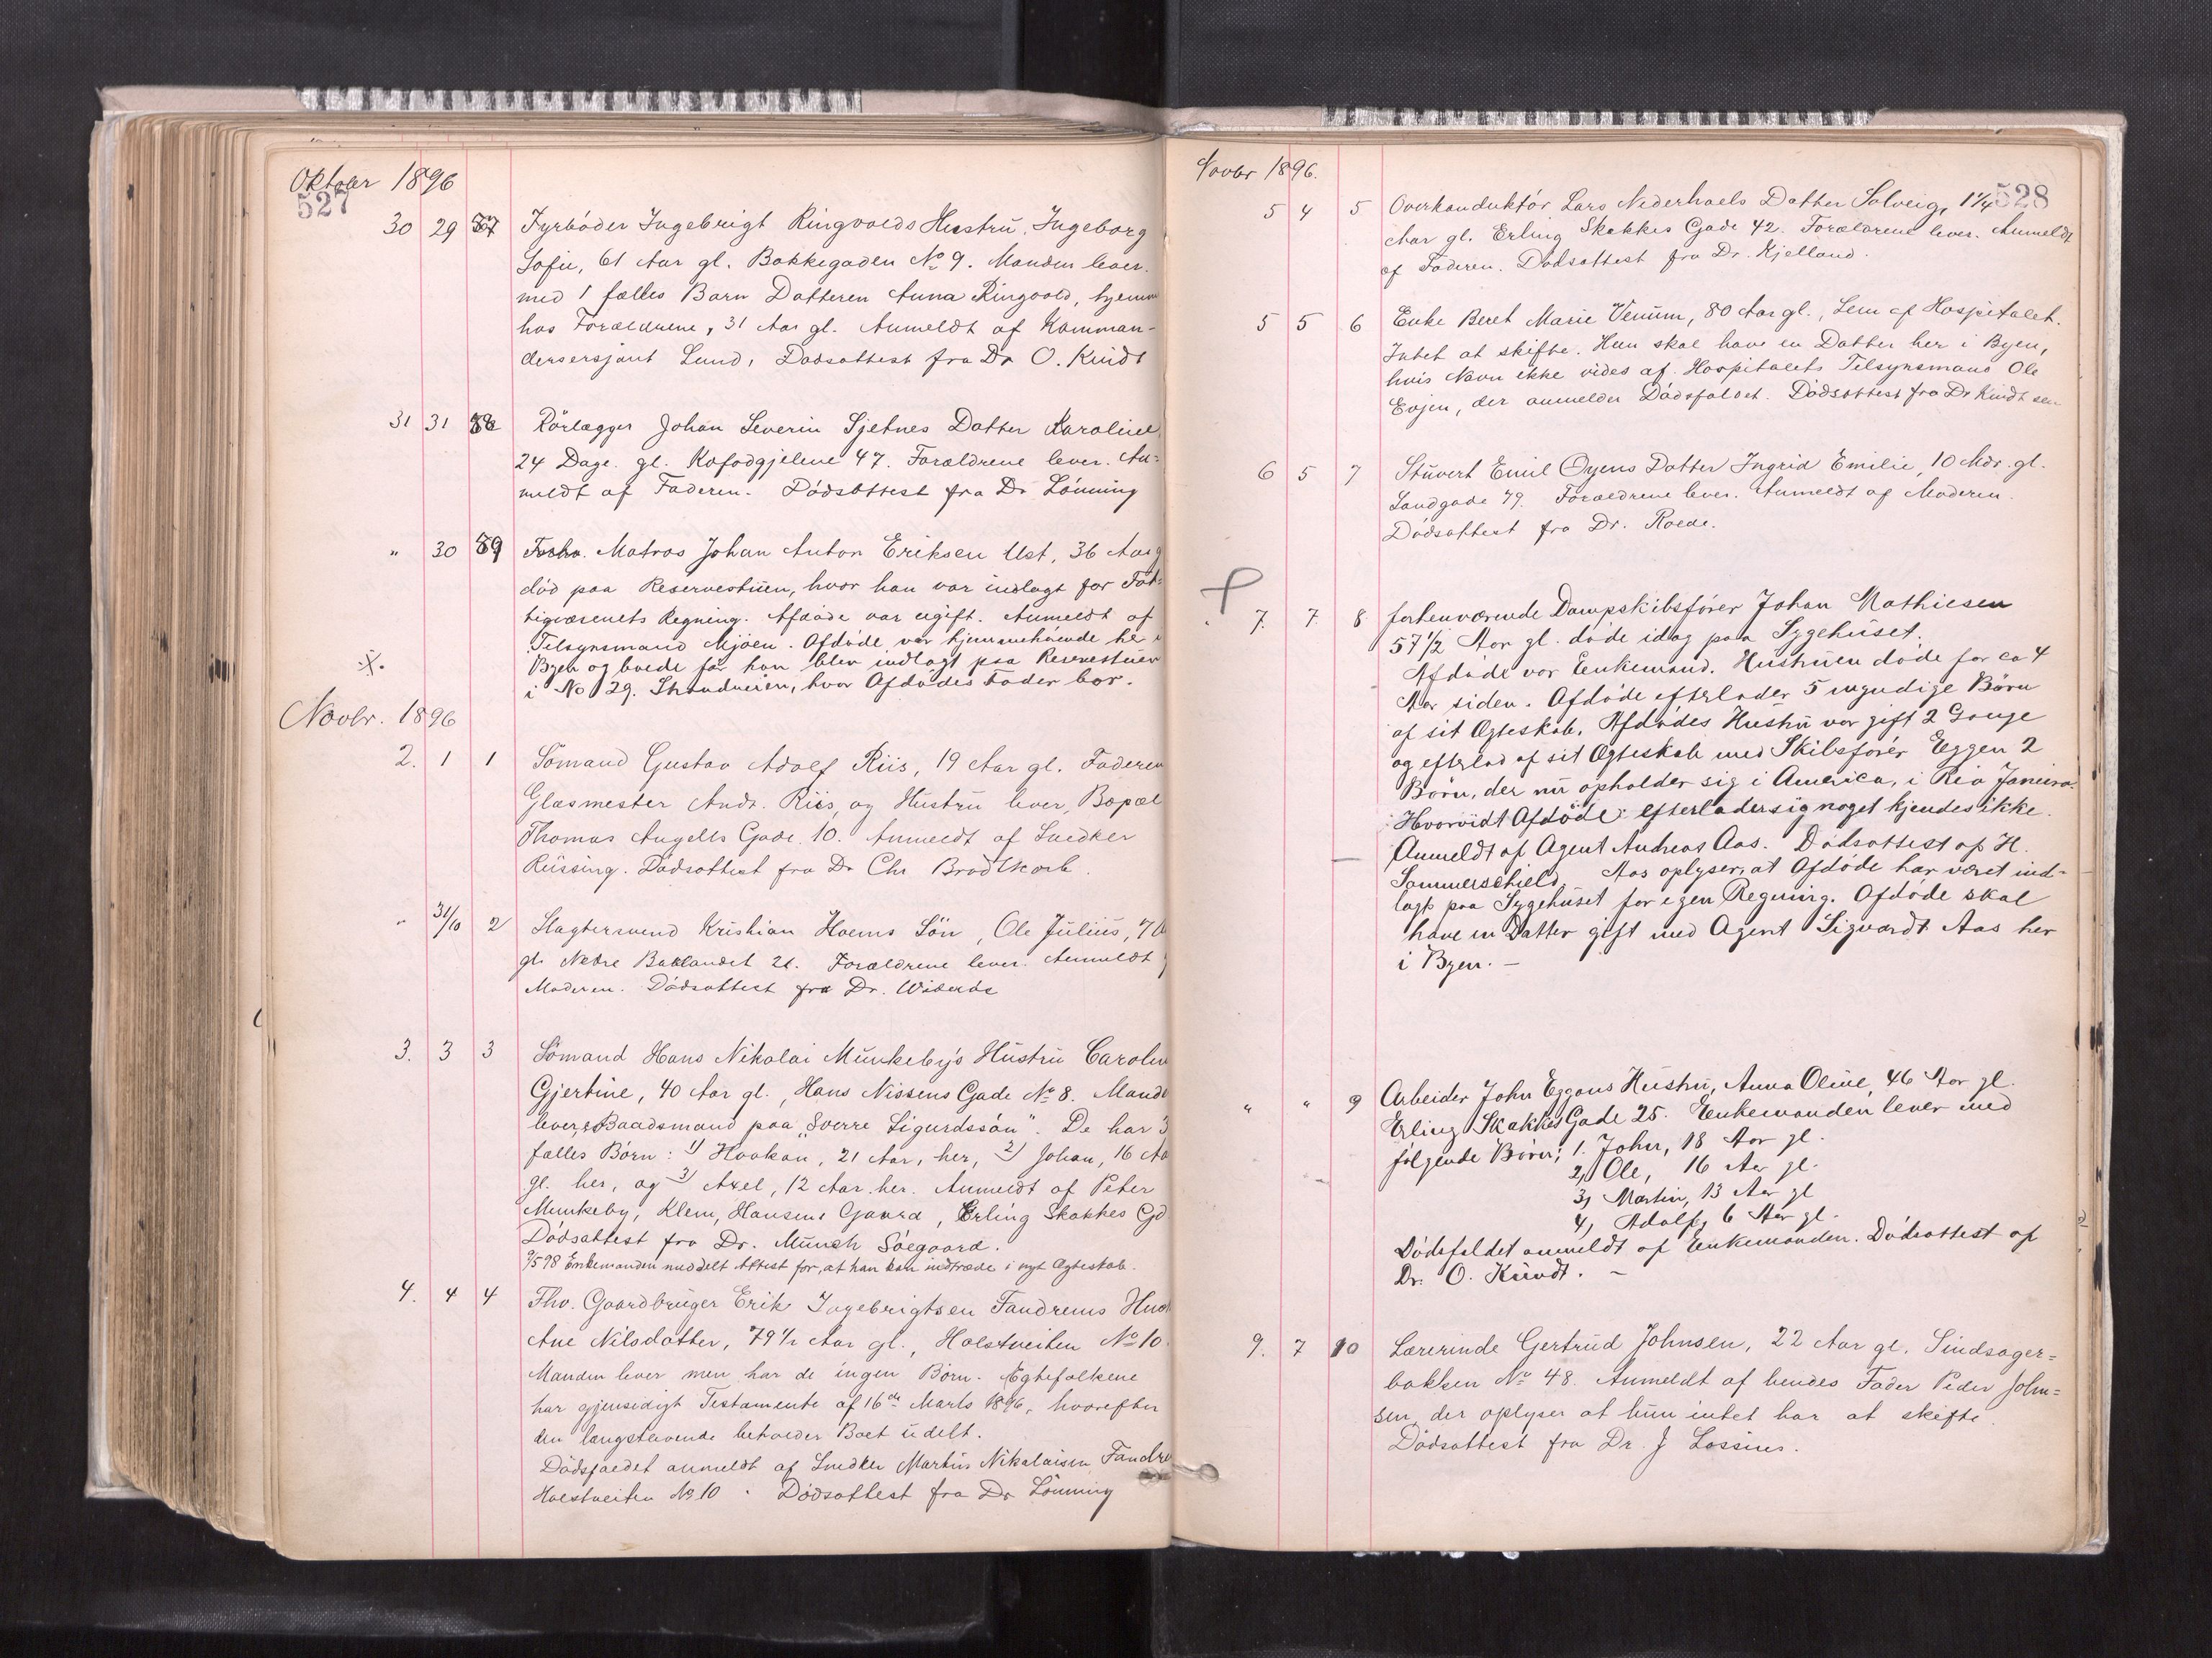 Oktober 1896
527
30 29 57 Fyrbøder Ingebrigt Ringvolds Hustru, Ingeborg
Sofie, 61 Aar gl. Bakkegaden No 9. Manden lever
med 1 fælles Barn Datteren Anna Ringvold, hjemme
hos Forældrene, 31 Aar gl. Anmeldt af Komman-
dersersjant Lund, Dødsattest fra Dr O. Kindt
31 31 58 Rörlægger Johan Severin Sjetnes Datter Karoline
24 Dage gl. Kofodgjelene 47. Forældrene lever. An-
meldt af Faderen. Dødsattest fra Dr Lönning
" 30 59 Matros Johan Anton Eriksen Ust, 36 Aar g
død paa Reservestuen, hvor han var indlagt for Fat-
tigvæsenets Regning. Afdøde var ugift. Anmeldt af
Tilsynsmand Mjøen. Afdøde var hjemmehørende her i
Byen og boede før han blev indlagt paa Reservestuen
i No 29. Strandveien, hvor Afdødes Fader bor.
Novbr. 1896
2. 1 1 Sömand Gustav Adolf Riis, 19 Aar gl. Faderen
Glasmester Andr. Riis, og Hustru lever, Bopæl
Thomas Angells Gade 10. Anmeldt af Snedker
Rüssing. Dødsattest fra Dr Chr Brodtkorb.
" 31/10 2 Slagtersvend Kristian Hoems Sön, Ole Julius, 7
gl. Nedre Baklandet 21. Forældrene lever. Anmeldt
Moderen. Dødsattest fra Dr. Widerøe
3. 3 3 Sömand Hans Nikolai Munkebys Hustru Caroline
Gjertine, 40 Aar gl., Hans Nissens Gade No 8. Mande
lever, Baadsmand paa "Sverre Sigurdssön". De har 3
fælles Børn: 1) Haakon, 21 Aar, her, 2) Johan, 16 Aa
gl. her, og 3) Axel, 12 Aar her. Anmeldt af Peter
Munkeby, Klem, Hansens Gaard, Erling Skakkes Gd.
Dødsattest fra Dr. Munch Søegaard.
9/5 98 Enkemanden meddelt Attest for, at han kan indtræde i nyt Ægteskab.
4. 4 4 Fhv. Gaardbruger Erik Ingebrigtsen Fandrems Hust
Ane Nilsdatter, 79 1/2 Aar gl., Holstveiten No 10.
Manden lever men har de ingen Børn. Egtefolkene
har gjensidigt Testamente af 16de Marts 1896, hvorefter
den længstlevende beholder Boet udelt.
Dødsfaldet anmeldt af Snedker Martin Nikolaisen Fandre
Holstveiten No 10. Dødsattest fra Dr Lönning
Novbr 1896.
528
5 4 5 Overkonduktør Lars Nederhoels Datter Solveig, 1 1/4
Aar gl. Erling Skakkes Gade 42. Forældrene lever. Anmeldt
af Faderen. Dødsattest fra Dr. Kjelland.
5 5 6 Enke Beret Marie Venum, 80 Aar gl., Lem af Hospitalet.
Intet at skifte. Hun skal have en Datter her i Byen,
hvis Navn ikke vides af Hospitalets Tilsynsmand Ole
Evjen, der anmelder Dødsfaldet. Dødsattest fra Dr Kindt sen
6 5 7 Stuvert Emil Oyens Datter Ingrid Emilie, 10 Mdr. gl.
Sandgade 79. Forældrene lever. Anmeldt af Moderen.
Dødsattest fra Dr. Roede.
7. 7. 8 forhenværende Dampskibsfører Johan Mathiesen
57 1/2 Aar gl. døde idag paa Sygehuset.
Afdøde var Enkemand. Hustruen døde for ca 4
Aar siden. Afdøde efterlader 5 myndige Børn
af sit Ægteskab. Afdødes Hustru var gift 2 Gange
og efterlod af sit Ægteskab med Skibsfører Eggen 2
Børn, der nu opholder sig i America, i Rio Janeiro.
Hvorvidt Afdöde efterlader sig noget kjendes ikke.
Anmeldt af Agent Andreas Aas. Dødsattest af H.
Sommerschield. Aas oplyser, at Afdøde har været ind-
lagt paa Sygehuset for egen Regning. Afdøde skal
have en Datter gift med Agent Sigvardt Aas her
i Byen. –
" " 9 Arbeider John Eggans Hustru, Anna Oline, 46 Aar gl.
Erling Skakkes Gade 25. Enkemanden lever med
følgende Børn; 1. John, 18 Aar gl.
2, Ole, 16 Aar gl.
3, Martin, 13 Aar gl
4, Adolf, 6 Aar gl.
Dødsfaldet anmeldt af Enkemanden. Dødsattest af
Dr. O. Kindt. –
9. 7 10 Lærerinde Gertrud Johnsen, 22 Aar gl. Sindsager-
bakken No 48. Anmeldt af hendes Fader Peder John-
sen, der oplyser at hun intet har at skifte.
Dødsattest fra Dr. J Lossius.